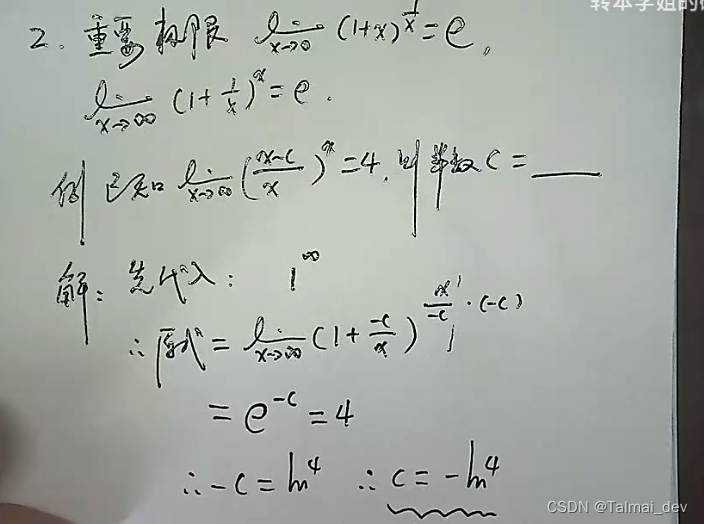 转本学姐的
2. 重要极限 lim x→0 (1+x)^(1/x) = e,
lim x→∞ (1+1/x)^x = e.
例 已知 lim x→∞ ((x-c)/x)^x = 4, 则常数 C = ____
解: 先代入: 1^∞
∴ 原式 = lim x→∞ (1 + (-c)/x)^(x/(-c)·(-c))
= e^(-c) = 4
∴ -c = ln4 ∴ c = -ln4
CSDN @Talmai_dev